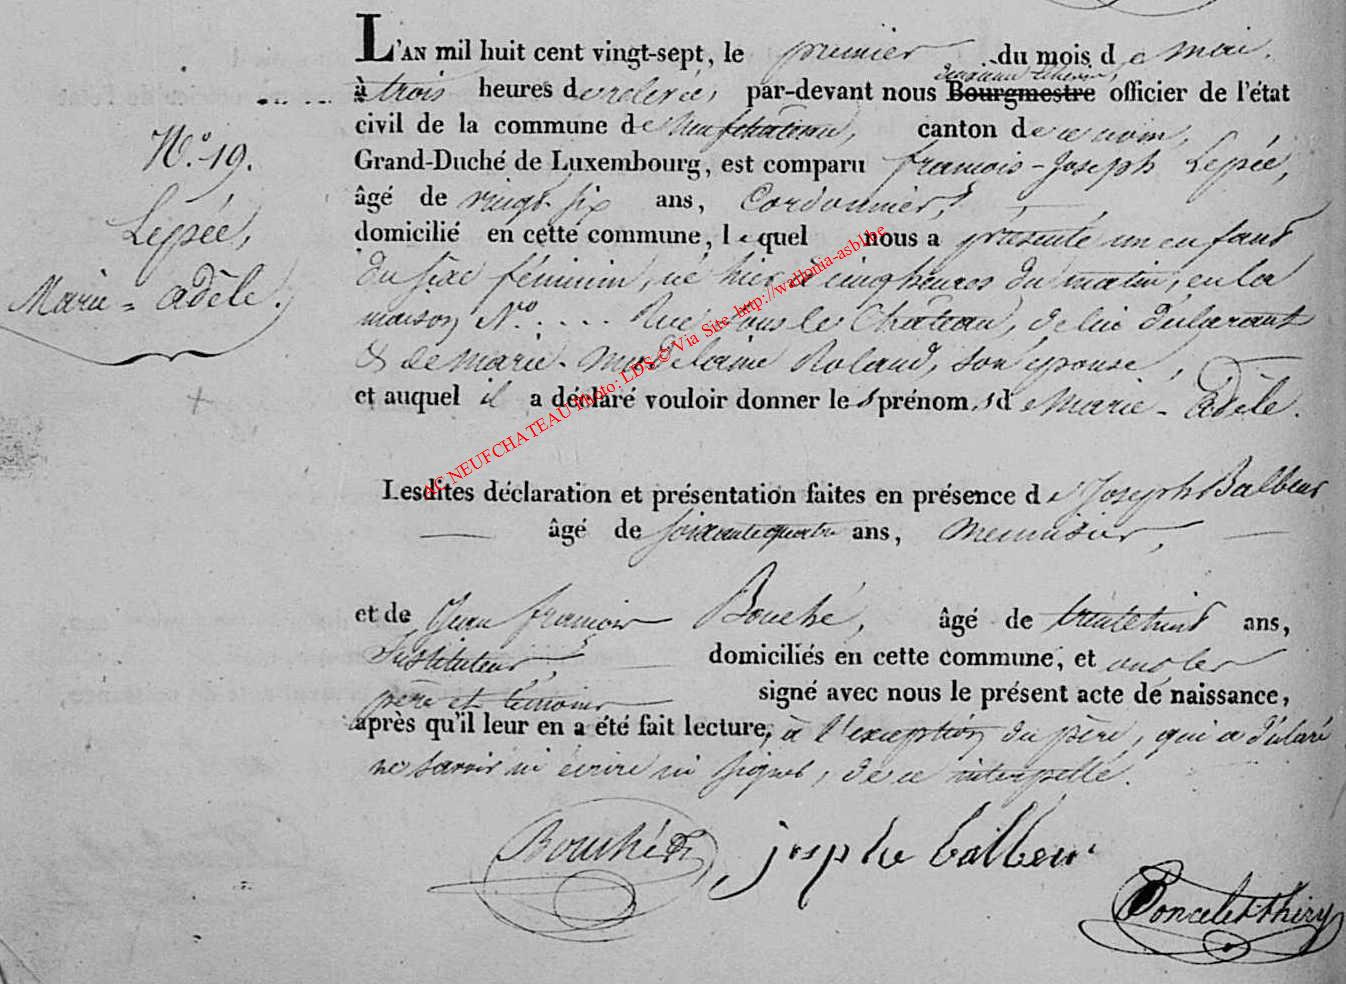 L'AN mil huit cent vingt-sept, le premier du mois de mai.
à trois heures de relevée, par-devant nous Bourgmestre deuxième Echevin, officier de l'état
civil de la commune de Neufchateau, canton de ce nom,
N.º 19.
Grand-Duché de Luxembourg, est comparu françois-Joseph Lepée,
âgé de vingt six ans, Cordonnier,
Lepée,
domicilié en cette commune, lequel nous a présenté un enfant
Marie = adèle.
du sexe féminin, né hier à cinq heures du matin, en la
maison N.º .... Rue sous le Chateau, de lui declarant
& de marie-madelaine Roland, son épouse,
et auquel il a déclaré vouloir donner les prénoms de Marie-adèle.
AC NEUFCHATEAU Photo: LDS © Via Site http://wallonia-asbl.be
Lesdites déclaration et présentation faites en présence de Joseph Balbeur
âgé de soixante quatre ans, menuisier,
et de Jean françois Bouché, âgé de trente huit ans,
Instituteur, domiciliés en cette commune, et ont les
père et témoins signé avec nous le présent acte de naissance,
après qu'il leur en a été fait lecture, à l'exception du père, qui a déclaré
ne savoir ni écrire ni signer, de ce interpellé.
Bouché
josephe balbeur
Poncelet Thiry